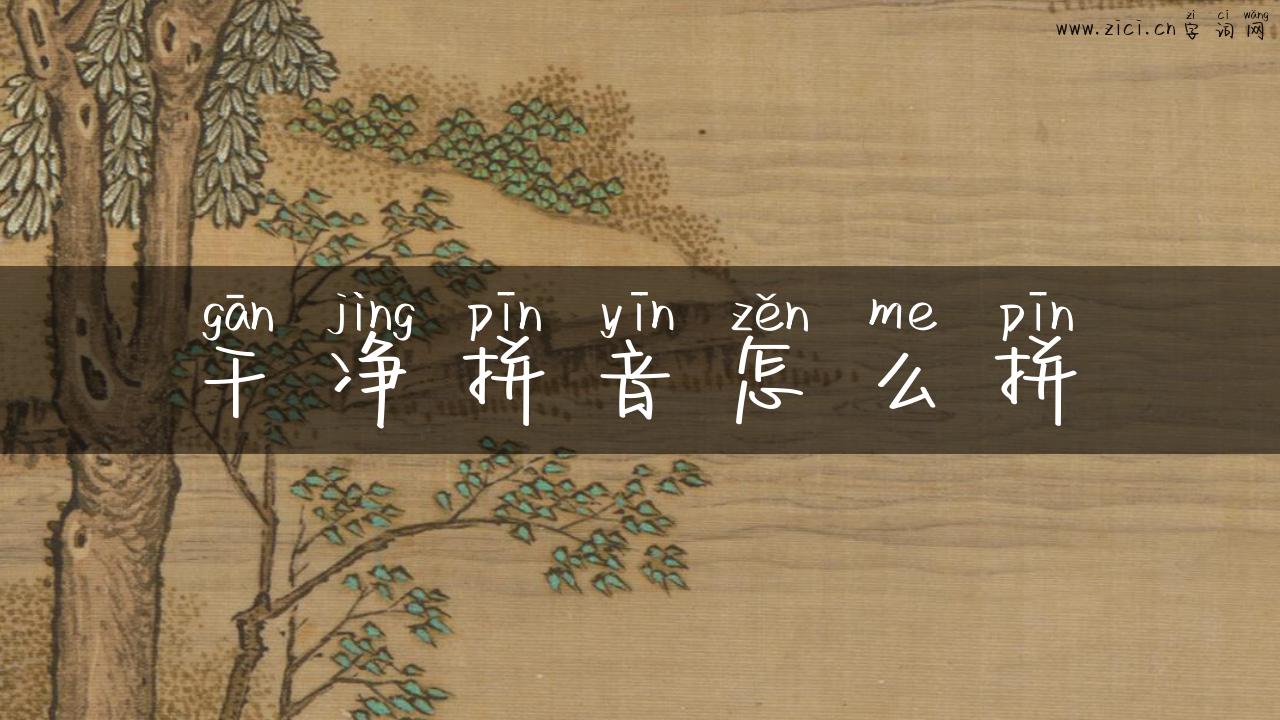 zì cí wǎng
www.zici.cn 字 词 网
gān jìng pīn yīn zěn me pīn
干 净 拼 音 怎 么 拼